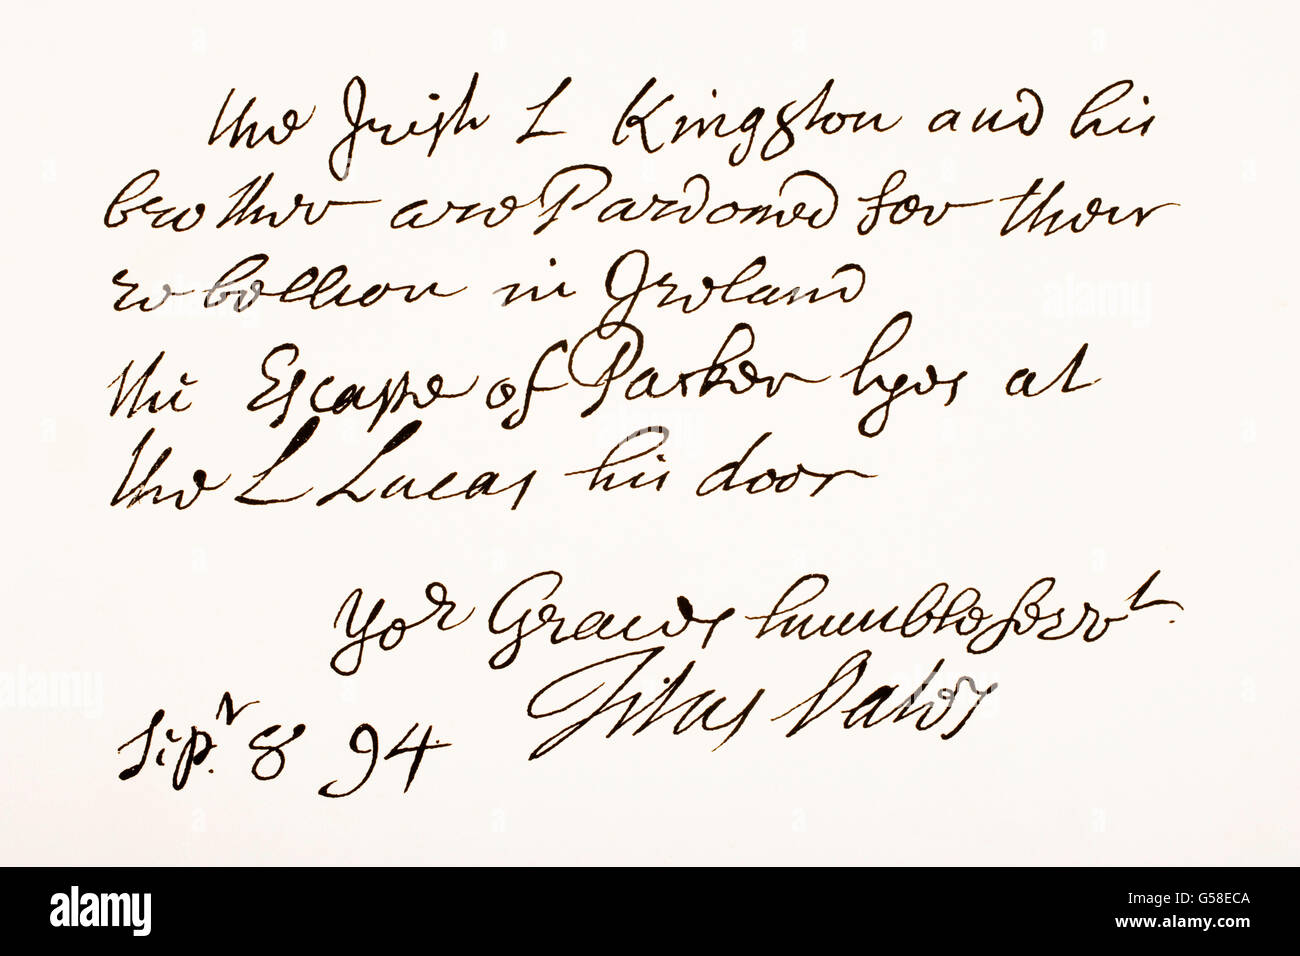 the Irish L Kingston and his
brother are Pardoned for their
rebellion in Ireland
the Escape of Parker lyes at
the L Lucas his door
Yor Graces humble servt.
Titus Oates
Sepr. 8 94
alamy
Image ID: G58ECA
www.alamy.com